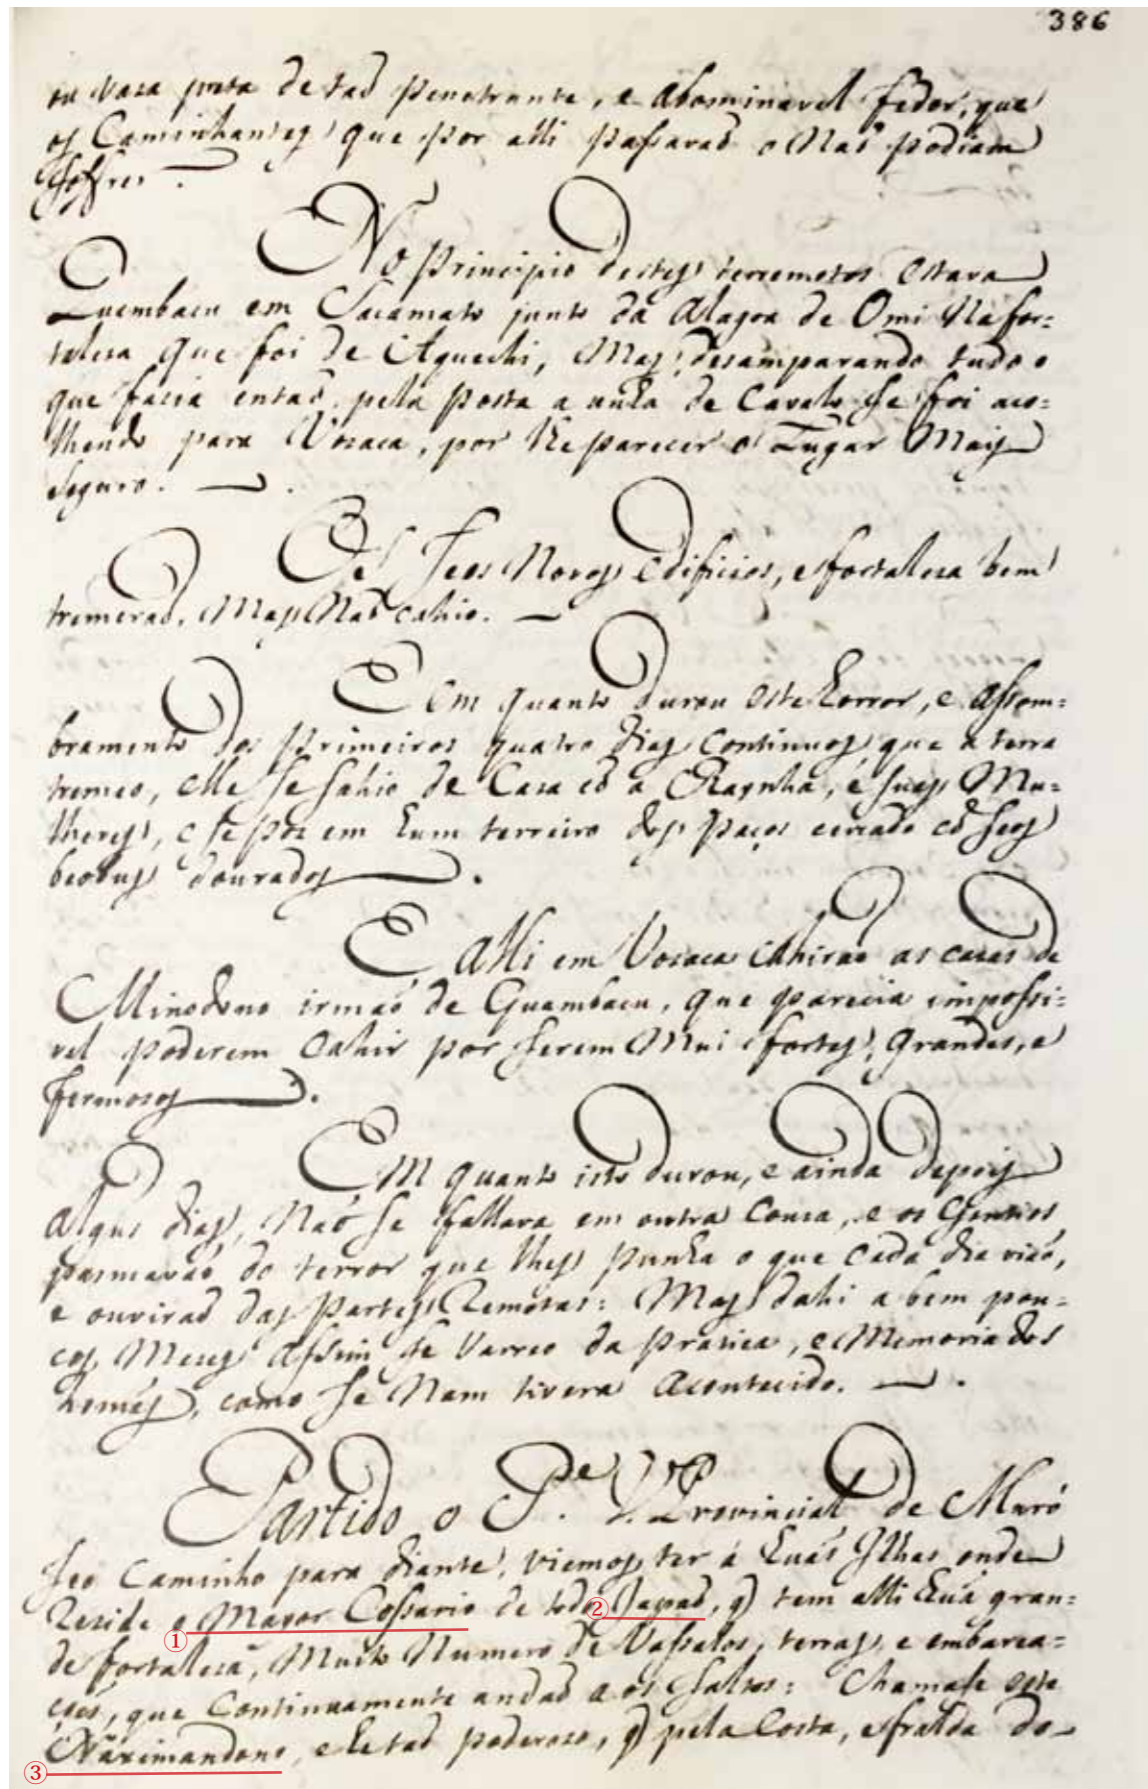 386
ou vasa preta de taõ penetrante, e abominavel fedor, que
os Caminhantes que por alli passavaõ o Naõ podiam
Soffrer.
No principio destes terremotos estava
Quambacu em Sacamoto junto da Alagoa de Omi Na for=
talesa que foi de Aquechi, Mas desamparando tudo o
que fasia entaõ, pela posta a unha de Cavalo se foi aco=
lhendo para Vozaca, por lhe parecer o Lugar Mais
seguro.
Os Seos Novos edificios, e fortalesa bem
tremeraõ, Mas Naõ cahio.
E em quanto durou este horror, e assom=
bramento dos primeiros quatro dias continuos que a terra
tremeo, elle se sahio de Casa cõ a Raynha, e suas Mu=
lheres, e se pos em hum terreiro dos paços cercado cõ seos
beobus dourados.
E alli em Vozaca cahiraõ as casas de
Minodono irmaõ de Quambacu, que parecia impossi=
vel poderem Cahir por serem Mui fortes, grandes, e
fermosos.
Em quanto isto durou, e ainda depois
alguns dias, Naõ se fallava em outra Cousa, e os Gentios
pasmavaõ do terror que lhes punha o que cada dia viaõ,
e ouviraõ das partes Remotas: Mas dahi a bem pou=
cos Meses assim se varreo da pratica, e Memoria dos
homẽs, como se Nam tivera acontecido.
Partido o Pe. V. Provincial de Muró
seo Caminho para diante, viemos ter á huãs Ilhas onde
Reside o Mayor Cossario de todo Japaõ, q̃ tem alli huã gran=
①
②
de fortalesa, Muito Numero de Vassalos, terras, e embarca=
ções, que Continuamente andaõ a os saltos: Chamase este
Naximandono, e he taõ poderoso, q̃ pela Costa, e fralda do
③